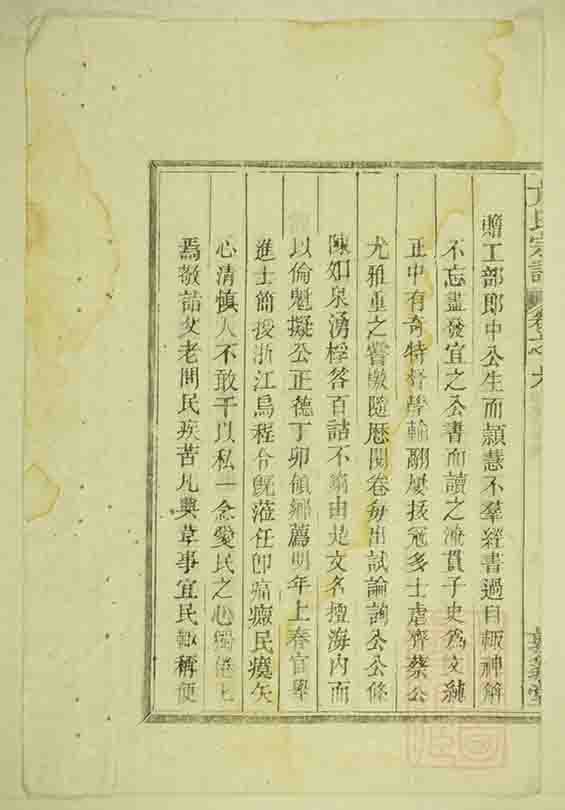 氏宗譜 卷之六 堂
贈工部郎中公生而穎慧不羣經書過目輙神解
不忘盡發宜之公書而讀之淹貫子史為文純
正中有奇特督學輪翮屡拔冠多士虗齊蔡公
尤雅重之嘗檄隨歷閱卷每出試論詢公公條
陳如泉湧桴答百詰不窮由是文名擅海內而
以倫魁擬公正德丁卯領鄉薦明年上春官舉
進士簡授浙江烏程令旣蒞任即痛瘝民瘼矢
心清慎人不敢干以私一念愛民之心獨惓七
焉敬詰父老問民疾苦凡興革事宜民輙稱便